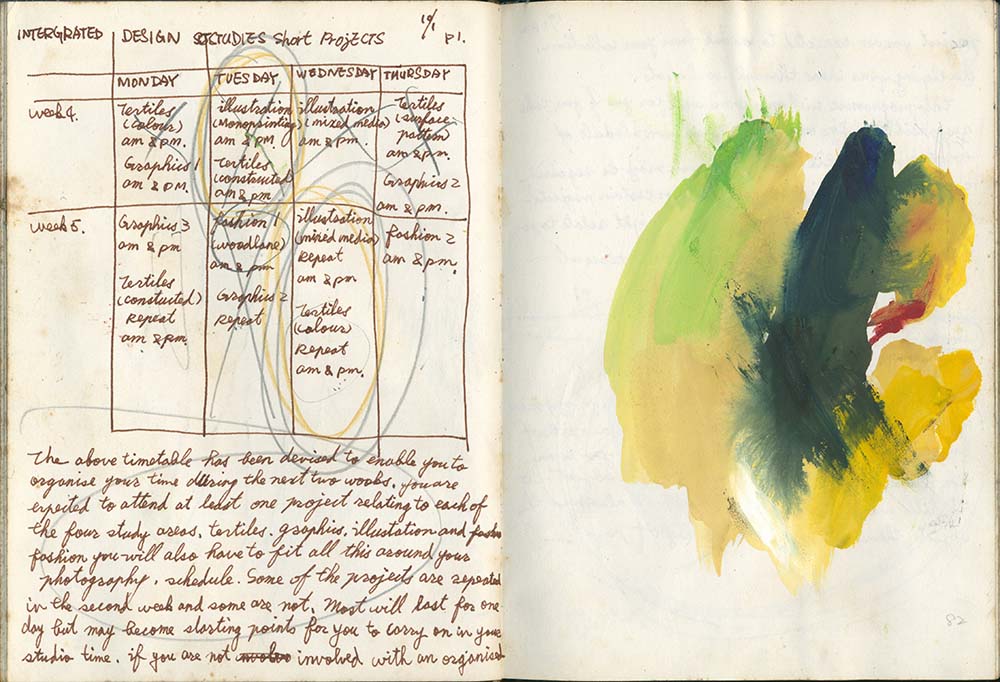 INTERGRATED DESIGN STUDIES Short ProjECTS 10/1 P1.
MONDAY TUESDAY WEDNESDAY THURSDAY
week 4.
Textiles
(Colour)
am & pm.
Graphics 1
am & pm.
illustration
(Monoprinting)
am & pm.
Textiles
(constructed
am & pm
illustration
(mixed media)
am & pm.
Textiles
(surface
pattern)
am & pm.
Graphics 2
am & pm.
week 5.
Graphics 3
am & pm
Textiles
(constucted)
Repeat
am & pm.
fashion 1
(woodlane)
am & pm
Graphics 2
Repeat
illustration
(mixed media)
Repeat
am & pm
Textiles
(colour)
Repeat
am & pm.
fashion 2
am & pm.
The above timetable has been devised to enable you to
organise your time during the next two weeks. you are
expected to attend at least one project relating to each of
the four study areas, textiles. graphics. illustation and
fashion you will also have to fit all this around your
photography. schedule. Some of the projects are repeated
in the second week and some are not. Most will last for one
day but may become starting points for you to carry on in your
studio time. if you are not involved with an organised
82